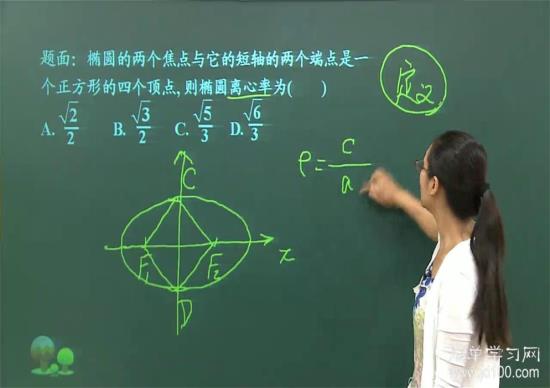 题面：椭圆的两个焦点与它的短轴的两个端点是一
个正方形的四个顶点,则椭圆离心率为(  )
A. √2/2  B. √3/2  C. √5/3  D. √6/3
定义
e = c/a
C
F₁ F₂ x
D
简单学习网
jd100.com